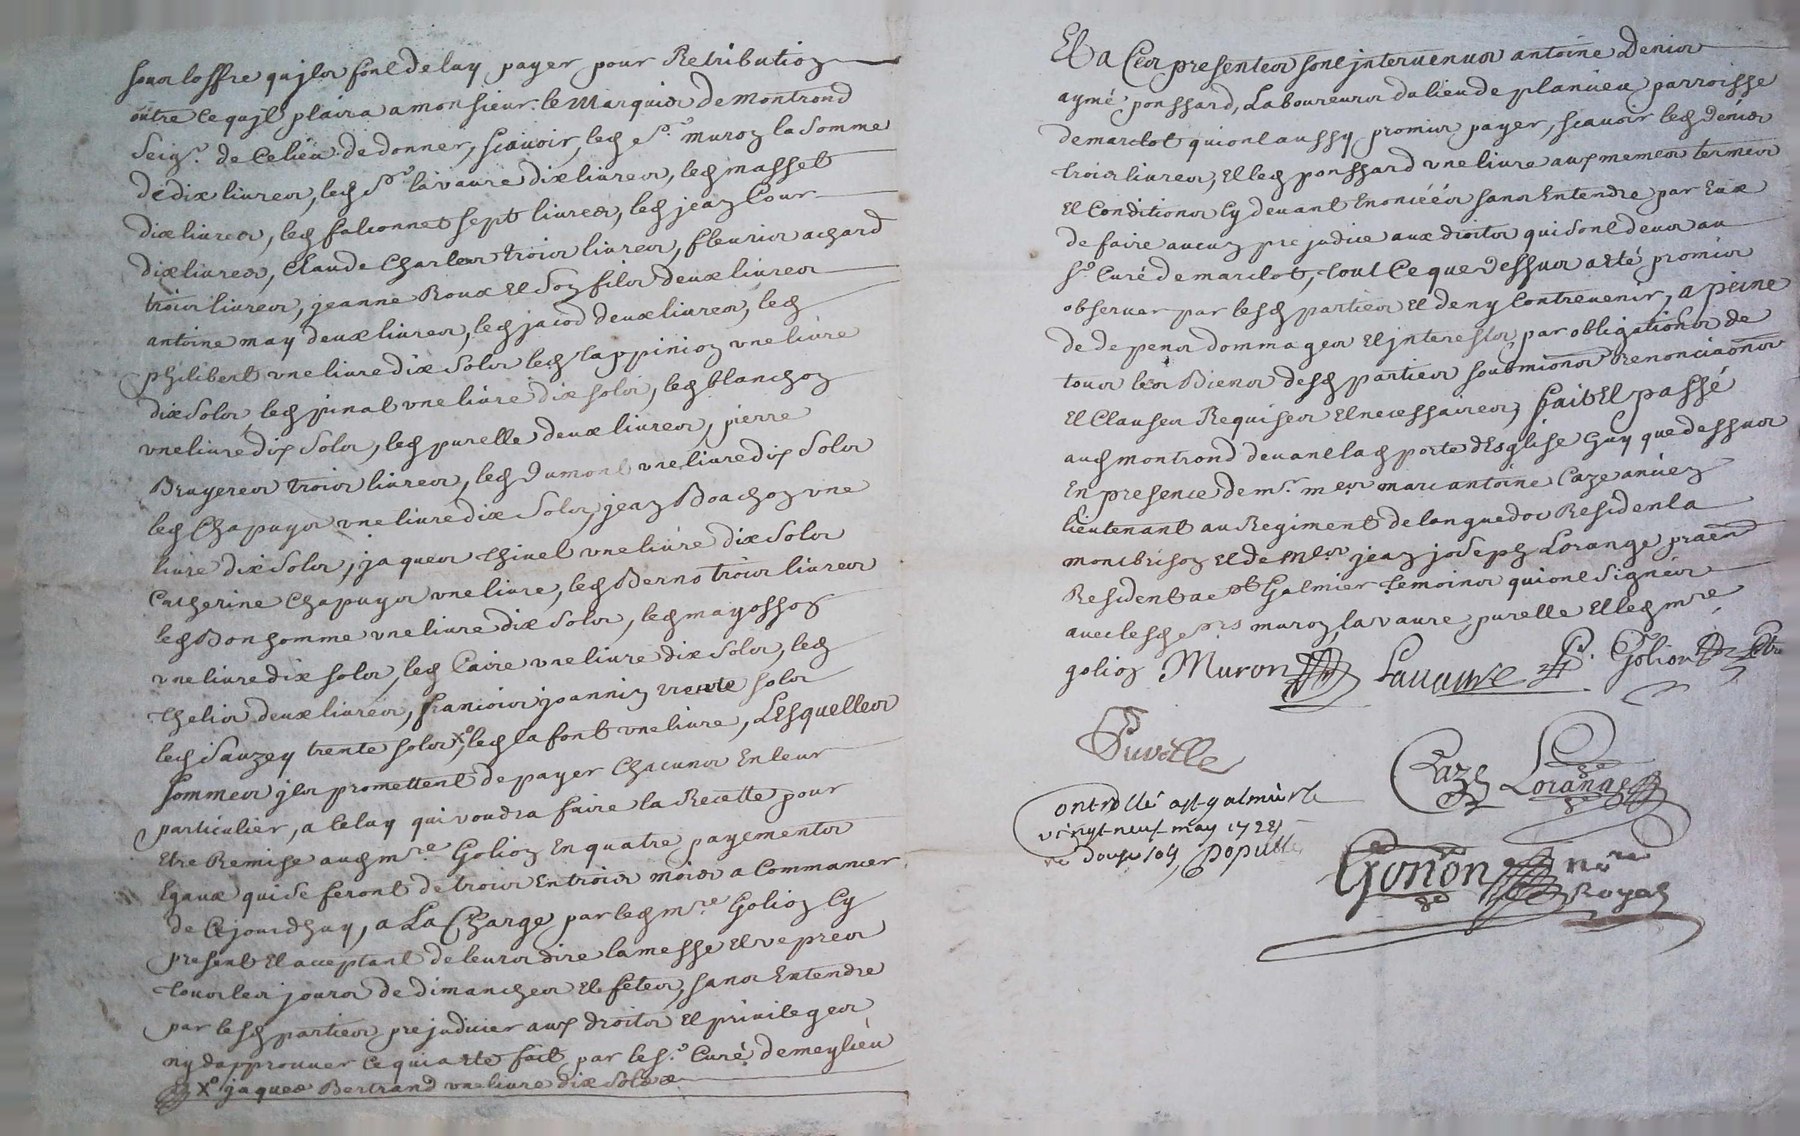 sous loffre qujls font de luy payer pour Retribution
outre ce qujl plaira a monsieur le Marquis de Montrond
Seigr. de ce lieu de donner, scavoir, led. sr. muron la somme
de dix livres, led. sr. lavaure dix livres, led. masset
dix livres, led. falconnet sept livres, led. jean Cour
dix livres, Claude Charles trois livres, fleuris achard
trois livres, jeanne Roux Et son fils deux livres
antoine may deux livres, led. jacod deux livres, led.
philibert une livre dix sols led. tappinion une livre
dix sols, led. pinat une livre dix sols, led. blanchon
une livre dix sols, led. purelle deux livres, pierre
Bruyeres trois livres, led. dumont une livre dix sols
led. Chapuys une livre dix sols, jean Boachon une
livre dix sols, jaques thivel une livre dix sols
Catherine Chapuys une livre, led. Berno trois livres
led. Bonhomme une livre dix sols, led. mayosson
une livre dix sols, led. Caire une livre dix sols, led.
thelis deux livres, francois joannin trente sols
led. Sauzey trente sols Xo, led. la font une livre, Lesquelles
sommes jls promettent de payer Chacuns En leur
particulier, a celuy qui voudra faire la Recette pour
Etre Remise aud. mre. Golion En quatre payements
Egaux qui se feront de trois En trois mois a Commancer
de Cejourdhuy, a La Charge par led. mre. Golion Cy
present Et acceptant de leurs dire la messe Et vepres
tous les jours de dimanches Et fetes, sans Entendre
par lesd. parties prejudicier aux droits Et privileges
ny dapprouver ce qui a ete fait par le sr. Curé de meylieu
Xo jaques Bertrand une livre dix sols
Et a Ces presentes sont jntervenus antoine Denis
aymé ponssard, Laboureurs du lieu de planieu parroisse
de marclot qui ont aussy promis payer, scavoir led. dénis
trois livres, Et led. ponssard une livre aux memes termes
Et Conditions Cy devant Enoncéés sans Entendre par Eux
de faire aucun prejudice aux droits qui sont deus au
sr. Curé de marclot, tout Ce que dessus a eté promis
observer par lesd. parties Et de ny Contrevenir, a peine
de depens dommages Et jnterests, par obligations de
tous les Biens desd. parties soubmions Renonciaons
Et Clauses Requises Et necessaires, fait Et passé
aud. montrond devant lad. porte dEsglise Guy que dessus
En presence de mr. mes. marc antoine Caze ancien
lieutenant au Regiment de languedoc Resident a
montbrison Et de mes. jean joseph Lorange praen
Resident a st. Galmier temoins qui ont Signés
avec lesd. srs muron, lavaure purelle Et led. mre
golion Muron Lavaure P. Golion
Purelle
Caze Lorange
Controllé a st galmier le
vingt neuf may 1728
re douze sols, Populle
Gonon nre
Royal